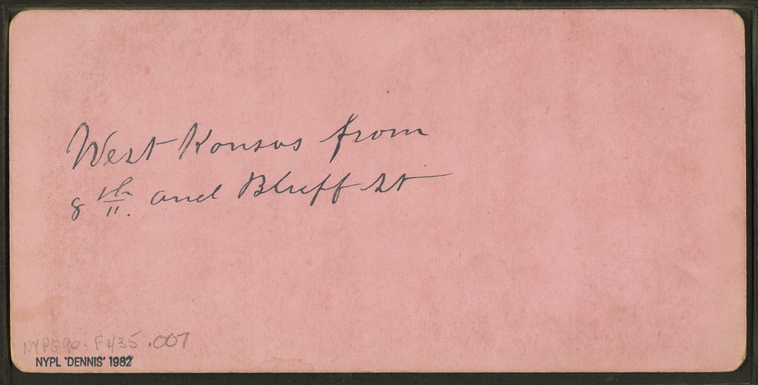 West Kansas from
8th. and Bluff St
NYPG90-F435.007
NYPL 'DENNIS' 1982